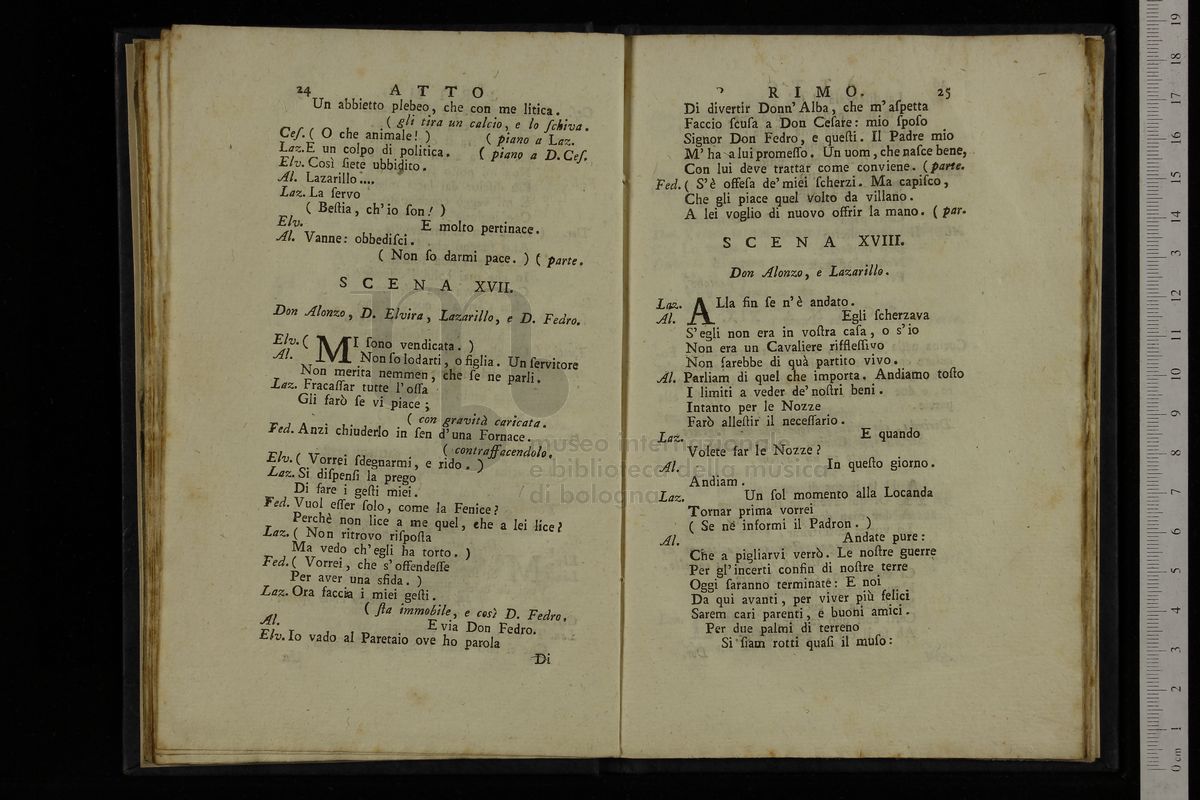 24 ATTO
Un abbietto plebeo, che con me litica.
( gli tira un calcio, e lo ſchiva.
Ceſ. ( O che animale! ) ( piano a Laz.
Laz. E un colpo di politica. ( piano a D. Ceſ.
Elv. Così ſiete ubbidito.
Al. Lazarillo....
Laz. La ſervo
( Beſtia, ch'io ſon! )
Elv. E molto pertinace.
Al. Vanne: obbediſci.
( Non ſo darmi pace. ) ( parte.
SCENA XVII.
Don Alonzo, D. Elvira, Lazarillo, e D. Fedro.
Elv. ( MI ſono vendicata. )
Al. Non ſo lodarti, o figlia. Un ſervitore
Non merita nemmen, che ſe ne parli.
Laz. Fracaſſar tutte l'oſſa
Gli farò ſe vi piace;
( con gravità caricata.
Fed. Anzi chiuderlo in ſen d'una Fornace.
( contraffacendolo.
Elv. ( Vorrei ſdegnarmi, e rido. )
Laz. Si diſpenſi la prego
Di fare i geſti miei.
Fed. Vuol eſſer ſolo, come la Fenice?
Perchè non lice a me quel, che a lei lice?
Laz. ( Non ritrovo riſpoſta
Ma vedo ch'egli ha torto. )
Fed. ( Vorrei, che s'offendeſſe
Per aver una sfida. )
Laz. Ora faccia i miei geſti.
( ſta immobile, e così D. Fedro.
Al. E via Don Fedro.
Elv. Io vado al Paretaio ove ho parola
Di
RIMO. 25
Di divertir Donn'Alba, che m'aſpetta
Faccio ſcuſa a Don Ceſare: mio ſpoſo
Signor Don Fedro, e queſti. Il Padre mio
M'ha a lui promeſſo. Un uom, che naſce bene,
Con lui deve trattar come conviene. ( parte.
Fed. ( S'è offeſa de'miei ſcherzi. Ma capiſco,
Che gli piace quel volto da villano.
A lei voglio di nuovo offrir la mano. ( par.
SCENA XVIII.
Don Alonzo, e Lazarillo.
Laz. ALla fin ſe n'è andato.
Al. Egli ſcherzava
S'egli non era in voſtra caſa, o s'io
Non era un Cavaliere riffleſſivo
Non ſarebbe di quà partito vivo.
Al. Parliam di quel che importa. Andiamo toſto
I limiti a veder de'noſtri beni.
Intanto per le Nozze
Farò alleſtir il neceſſario.
Laz. E quando
Volete far le Nozze?
Al. In queſto giorno.
Andiam.
Laz. Un ſol momento alla Locanda
Tornar prima vorrei
( Se ne informi il Padron. )
Al. Andate pure:
Che a pigliarvi verrò. Le noſtre guerre
Per gl'incerti confin di noſtre terre
Oggi ſaranno terminate: E noi
Da qui avanti, per viver più felici
Sarem cari parenti, e buoni amici.
Per due palmi di terreno
Si ſiam rotti quaſi il muſo:
museo internazionale
e biblioteca della musica
di bologna
0 cm 1 2 3 4 5 6 7 8 9 10 11 12 13 14 15 16 17 18 19